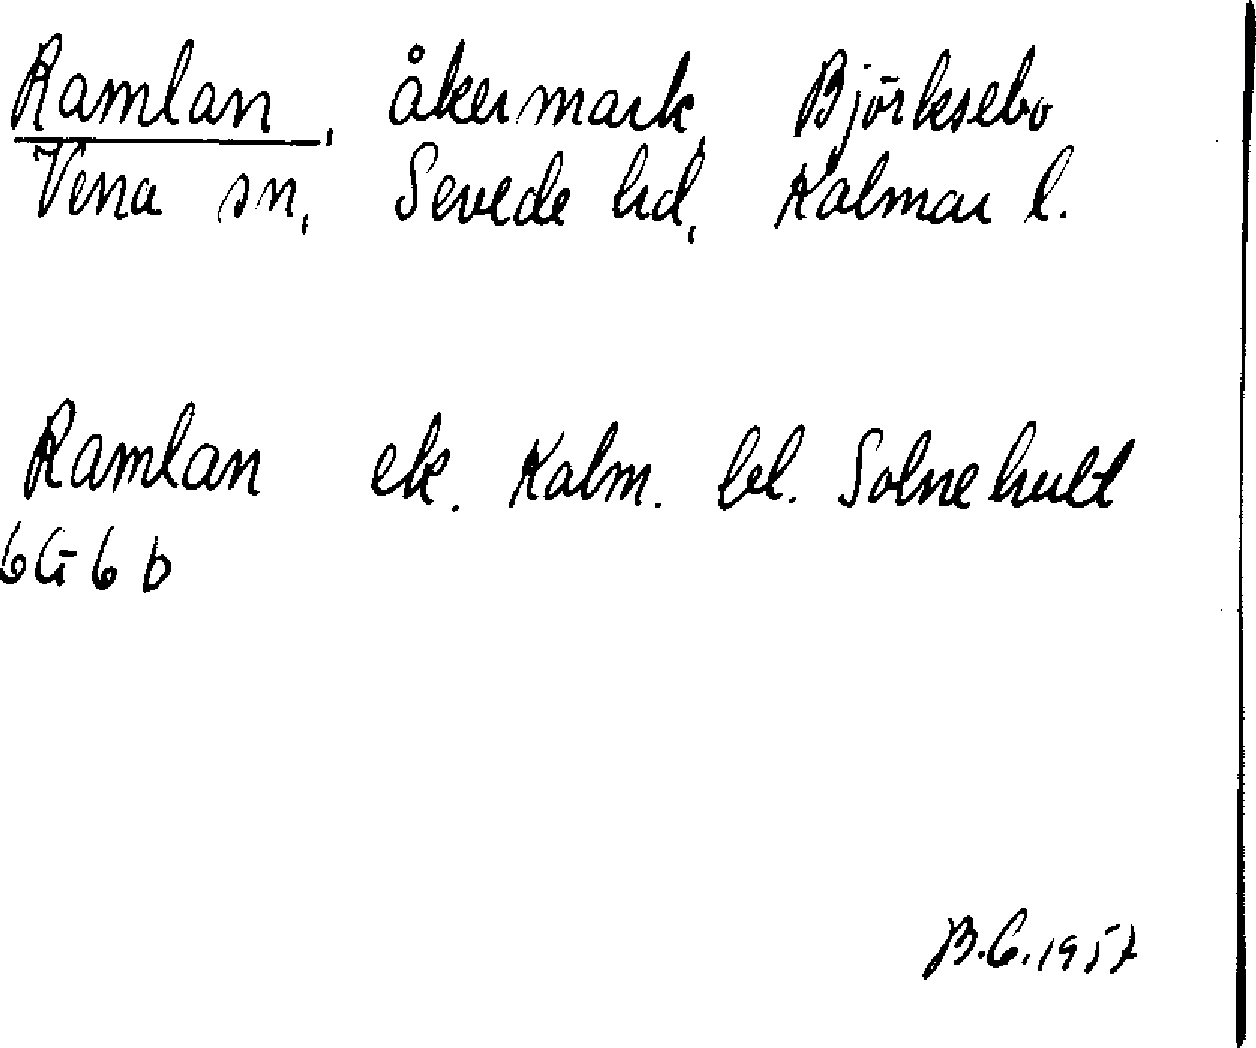 Ramlan, åkermark, Björksebo
Vena sn, Sevede hd, Kalmar l.
Ramlan ek. Kalm. bl. Solnehult
6G 6 b
B.G. 1957